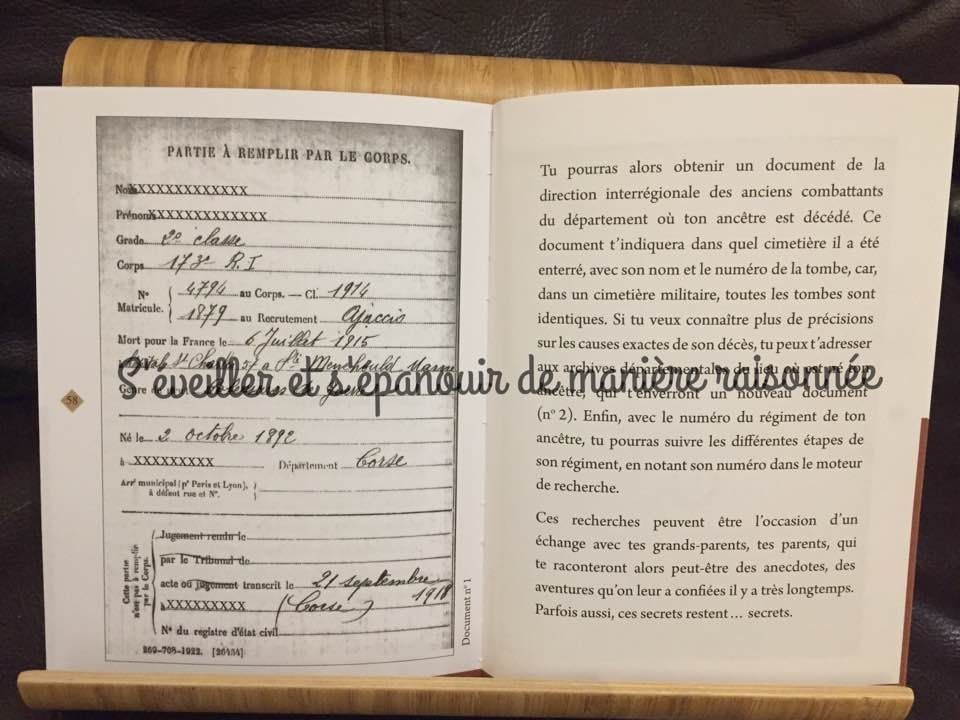 PARTIE À REMPLIR PAR LE CORPS.
XXXXXXXXXXXX
Prénoms XXXXXXXXXXXXX
Grade 2e classe
Corps 173e R. I
N° Matricule. 4794 au Corps. — Cl. 1914
1879 au Recrutement Ajaccio
Mort pour la France le 6 Juillet 1915
Ste Menehould Marne
Genre
Né le 2 octobre 1892
à XXXXXXXXX Département Corse
Arr municipal (pr Paris et Lyon), à défaut rue et N°.
Cette partie n'est pas à remplir par le Corps.
Jugement rendu le
par le Tribunal de
acte ou jugement transcrit le 21 septembre 1918
à XXXXXXXXX (Corse)
N° du registre d'état civil
269-708-1922. [26434]
Document n° 1
58
Tu pourras alors obtenir un document de la
direction interrégionale des anciens combattants
du département où ton ancêtre est décédé. Ce
document t'indiquera dans quel cimetière il a été
enterré, avec son nom et le numéro de la tombe, car,
dans un cimetière militaire, toutes les tombes sont
identiques. Si tu veux connaître plus de précisions
sur les causes exactes de son décès, tu peux t'adresser
aux archives départementales du lieu où est né ton
ancêtre, qui t'enverront un nouveau document
(n° 2). Enfin, avec le numéro du régiment de ton
ancêtre, tu pourras suivre les différentes étapes de
son régiment, en notant son numéro dans le moteur
de recherche.
Ces recherches peuvent être l'occasion d'un
échange avec tes grands-parents, tes parents, qui
te raconteront alors peut-être des anecdotes, des
aventures qu'on leur a confiées il y a très longtemps.
Parfois aussi, ces secrets restent… secrets.
S'éveiller et s'épanouir de manière raisonnée